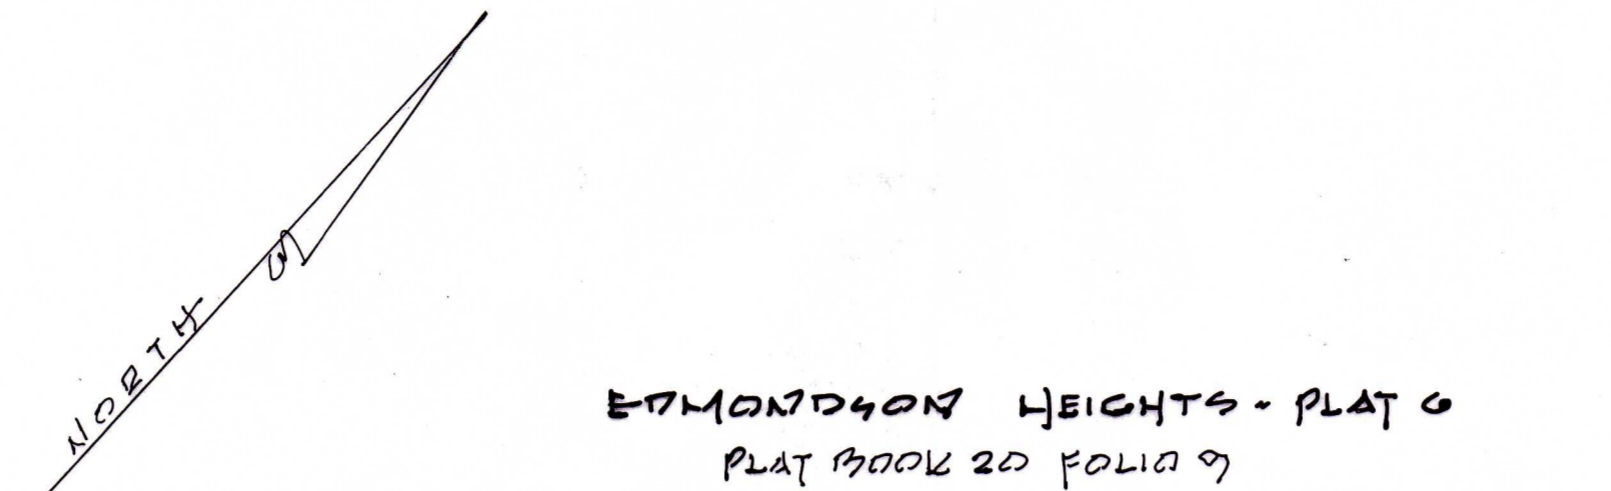 NORTH
EDMONDSON HEIGHTS - PLAT 6
PLAT BOOK 20 FOLIO 9